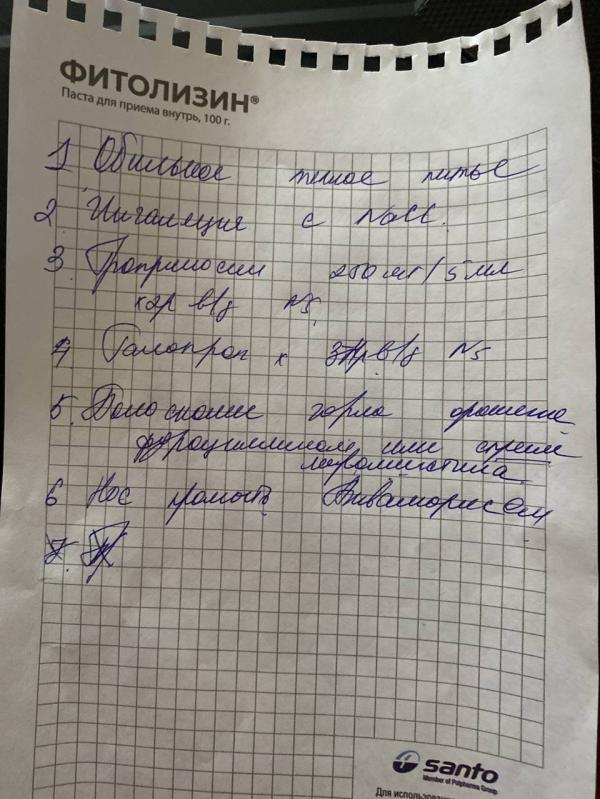 ФИТОЛИЗИН®
Паста для приема внутрь, 100 г.
1 Обильное теплое питье
2. Ингаляция с NaCl.
3. Гроприносин 250 мг/5 мл
х2р в/д N5
4 х 3р в/д N5
5. Полоскание горла орошение
фурациллином или спрей
мирамистина
6 Нос промыть Аквамарисом
7.
santo
Member of Polpharma Group
Для использован